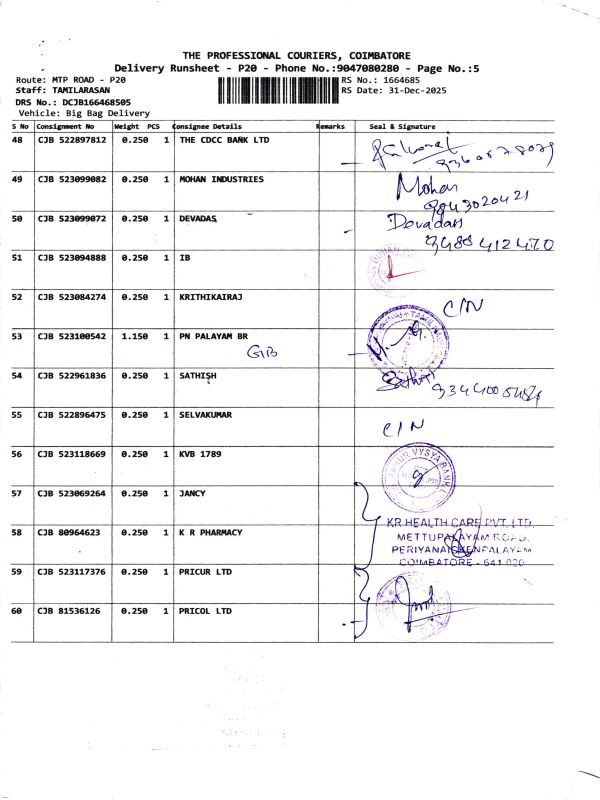 THE PROFESSIONAL COURIERS, COIMBATORE
Delivery Runsheet - P20 - Phone No.:9047080280 - Page No.:5
Route: MTP ROAD - P20 RS No.: 1664685
Staff: TAMILARASAN RS Date: 31-Dec-2025
DRS No.: DCJB166468505
Vehicle: Big Bag Delivery
S No Consignment No Weight PCS Consignee Details Remarks Seal & Signature
48 CJB 522897812 0.250 1 THE CDCC BANK LTD
49 CJB 523099082 0.250 1 MOHAN INDUSTRIES Mohan
9843020421
50 CJB 523099072 0.250 1 DEVADAS Devadas
9488412470
51 CJB 523094888 0.250 1 IB
52 CJB 523084274 0.250 1 KRITHIKAIRAJ C/N
53 CJB 523100542 1.150 1 PN PALAYAM BR
GB
54 CJB 522961836 0.250 1 SATHISH Sathish
55 CJB 522896475 0.250 1 SELVAKUMAR C/N
56 CJB 523118669 0.250 1 KVB 1789 VYSYA BANK
57 CJB 523069264 0.250 1 JANCY
KR HEALTH CARE PVT. LTD.
58 CJB 80964623 0.250 1 K R PHARMACY METTUPALAYAM ROAD,
PERIYANAICKENPALAYAM
COIMBATORE - 641 020
59 CJB 523117376 0.250 1 PRICUR LTD
60 CJB 81536126 0.250 1 PRICOL LTD